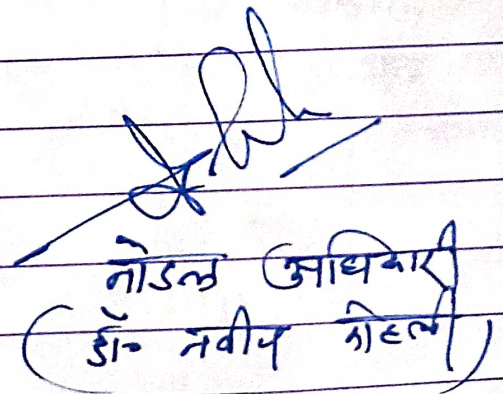 नोडल अधिकारी
(डॉ॰ नवीन कोहली)